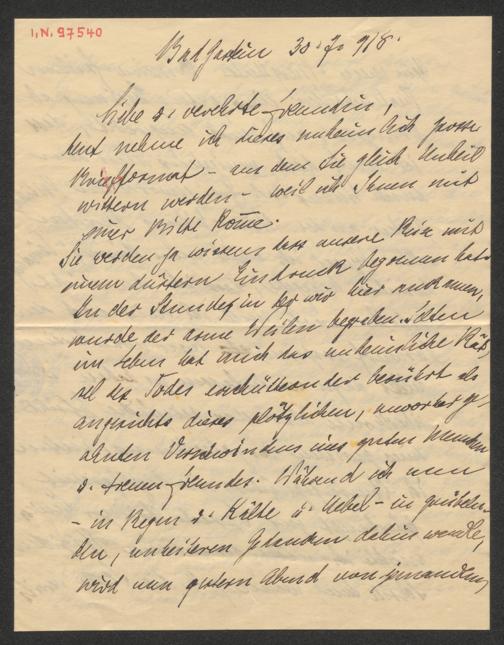 I.N. 97540
Bad Gastein 30. 918.
Liebe u. verehrte Freundin,
heut nehme ich dieses unheimlich grosse
Briefformat – aus dem Sie gleich Unheil
wittern werden – weil ich Ihnen mit
einer Bitte kome.
Sie werden ja wissen dass unsere Reise mit
einem düstern Eindruck begonnen hat.
In der Stunde, in der wir hier ankamen,
wurde der arme Weilen begraben. Selten
im Leben hat mich das unheimliche Rät-
sel des Todes erschütternder berührt als
angesichts dieses plötzlichen, unvorherge-
ahnten Verschwindens eines guten Menschen
u. treuen Freundes. Während ich nun
– in Regen u. Kälte u. Nebel – in grübeln-
den, unheiteren Gedanken dahin wandle,
wird nun gestern Abend von jemandem,